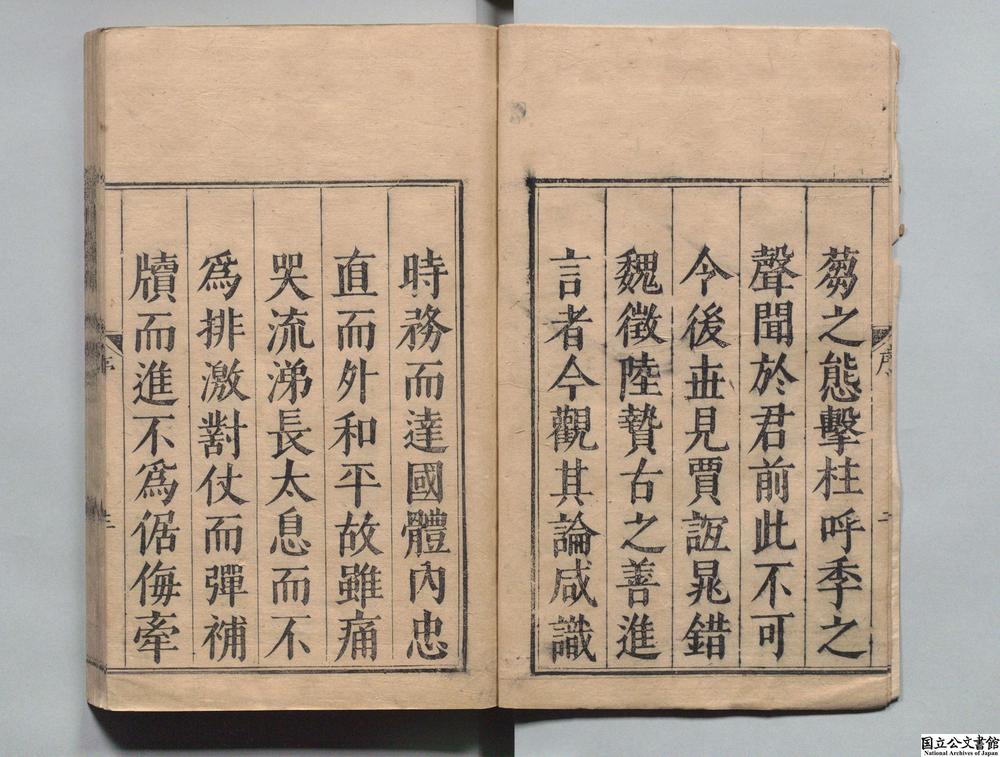 蒭之態擊柱呼季之
聲聞於君前此不可
令後丗見賈誼晁錯
魏徵陸贄古之善進
言者今觀其論咸識
時務而達國體內忠
直而外和平故雖痛
哭流涕長太息而不
為排激對仗而彈補
牘而進不為倨侮牽
序
国立公文書館
National Archives of Japan